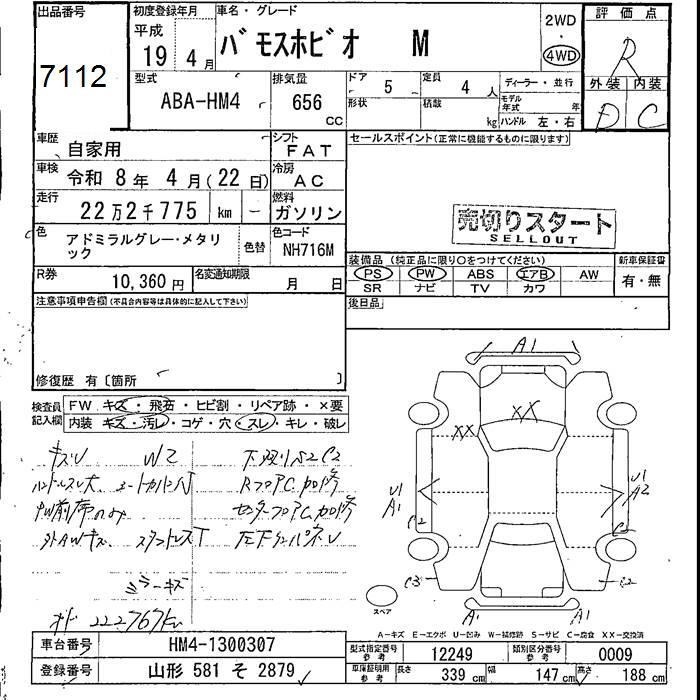 出品番号
7112
初度登録年月
平成
19年 4月
車名・グレード
バモスホビオ M
2WD
・
4WD
評価点
R
外装 内装
D C
型式
ABA-HM4
排気量
656
cc
ドア 5
形状
定員 4 人
積載 kg
ディーラー・並行
モデル年式 年
ハンドル 左・右
車歴
自家用
シフト
FAT
車検
令和 8年 4月(22日)
冷房
AC
走行
22万2千775 km
燃料
ガソリン
色
アドミラルグレー・メタリック
色替
色コード
NH716M
R券
10,360円
名変通知期限
月 日
セールスポイント(正常に機能するものに限ります)
売切りスタート
SELLOUT
装備品(純正品に限り○をつけてください)
PS PW ABS エアB AW
SR ナビ TV カワ
新車保証書
有・無
後日品
注意事項申告欄(不具合内容等は具体的に記入して下さい)
修復歴 有〔箇所 〕
検査員記入欄
FW キズ・飛石・ヒビ割・リペア跡・×要
内装 キズ・汚レ・コゲ・穴・スレ・キレ・破レ
キズU W2
ハンドルスレ大
PW前席のみ
外AWキズ
ミラーキズ
オド 222767km
A1
XX
XX
U1
A1
C2
C3
U1
A2
C2
A1
A1
スペア
A－キズ E－エクボ U－凹み W－補修跡 S－サビ C－腐食 XX－交換済
車台番号
HM4-1300307
登録番号
山形 581 そ 2879
型式指定番号
参考
12249
類別区分番号
参考
0009
車庫証明用
参考
長さ 339 cm
幅 147 cm
高さ 188 cm